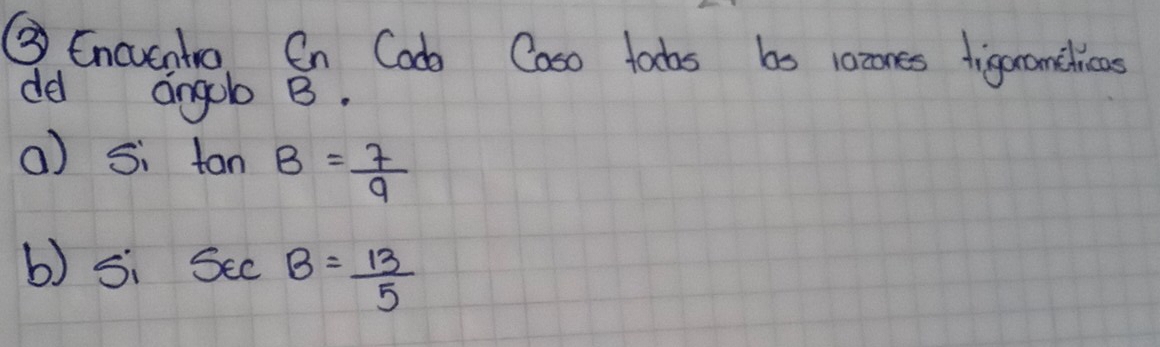 ③ Encuentra En Cada Caso todas las razones trigonométricas
del ángulo B.
a) Si tan B = 7/9
b) Si Sec B = 13/5